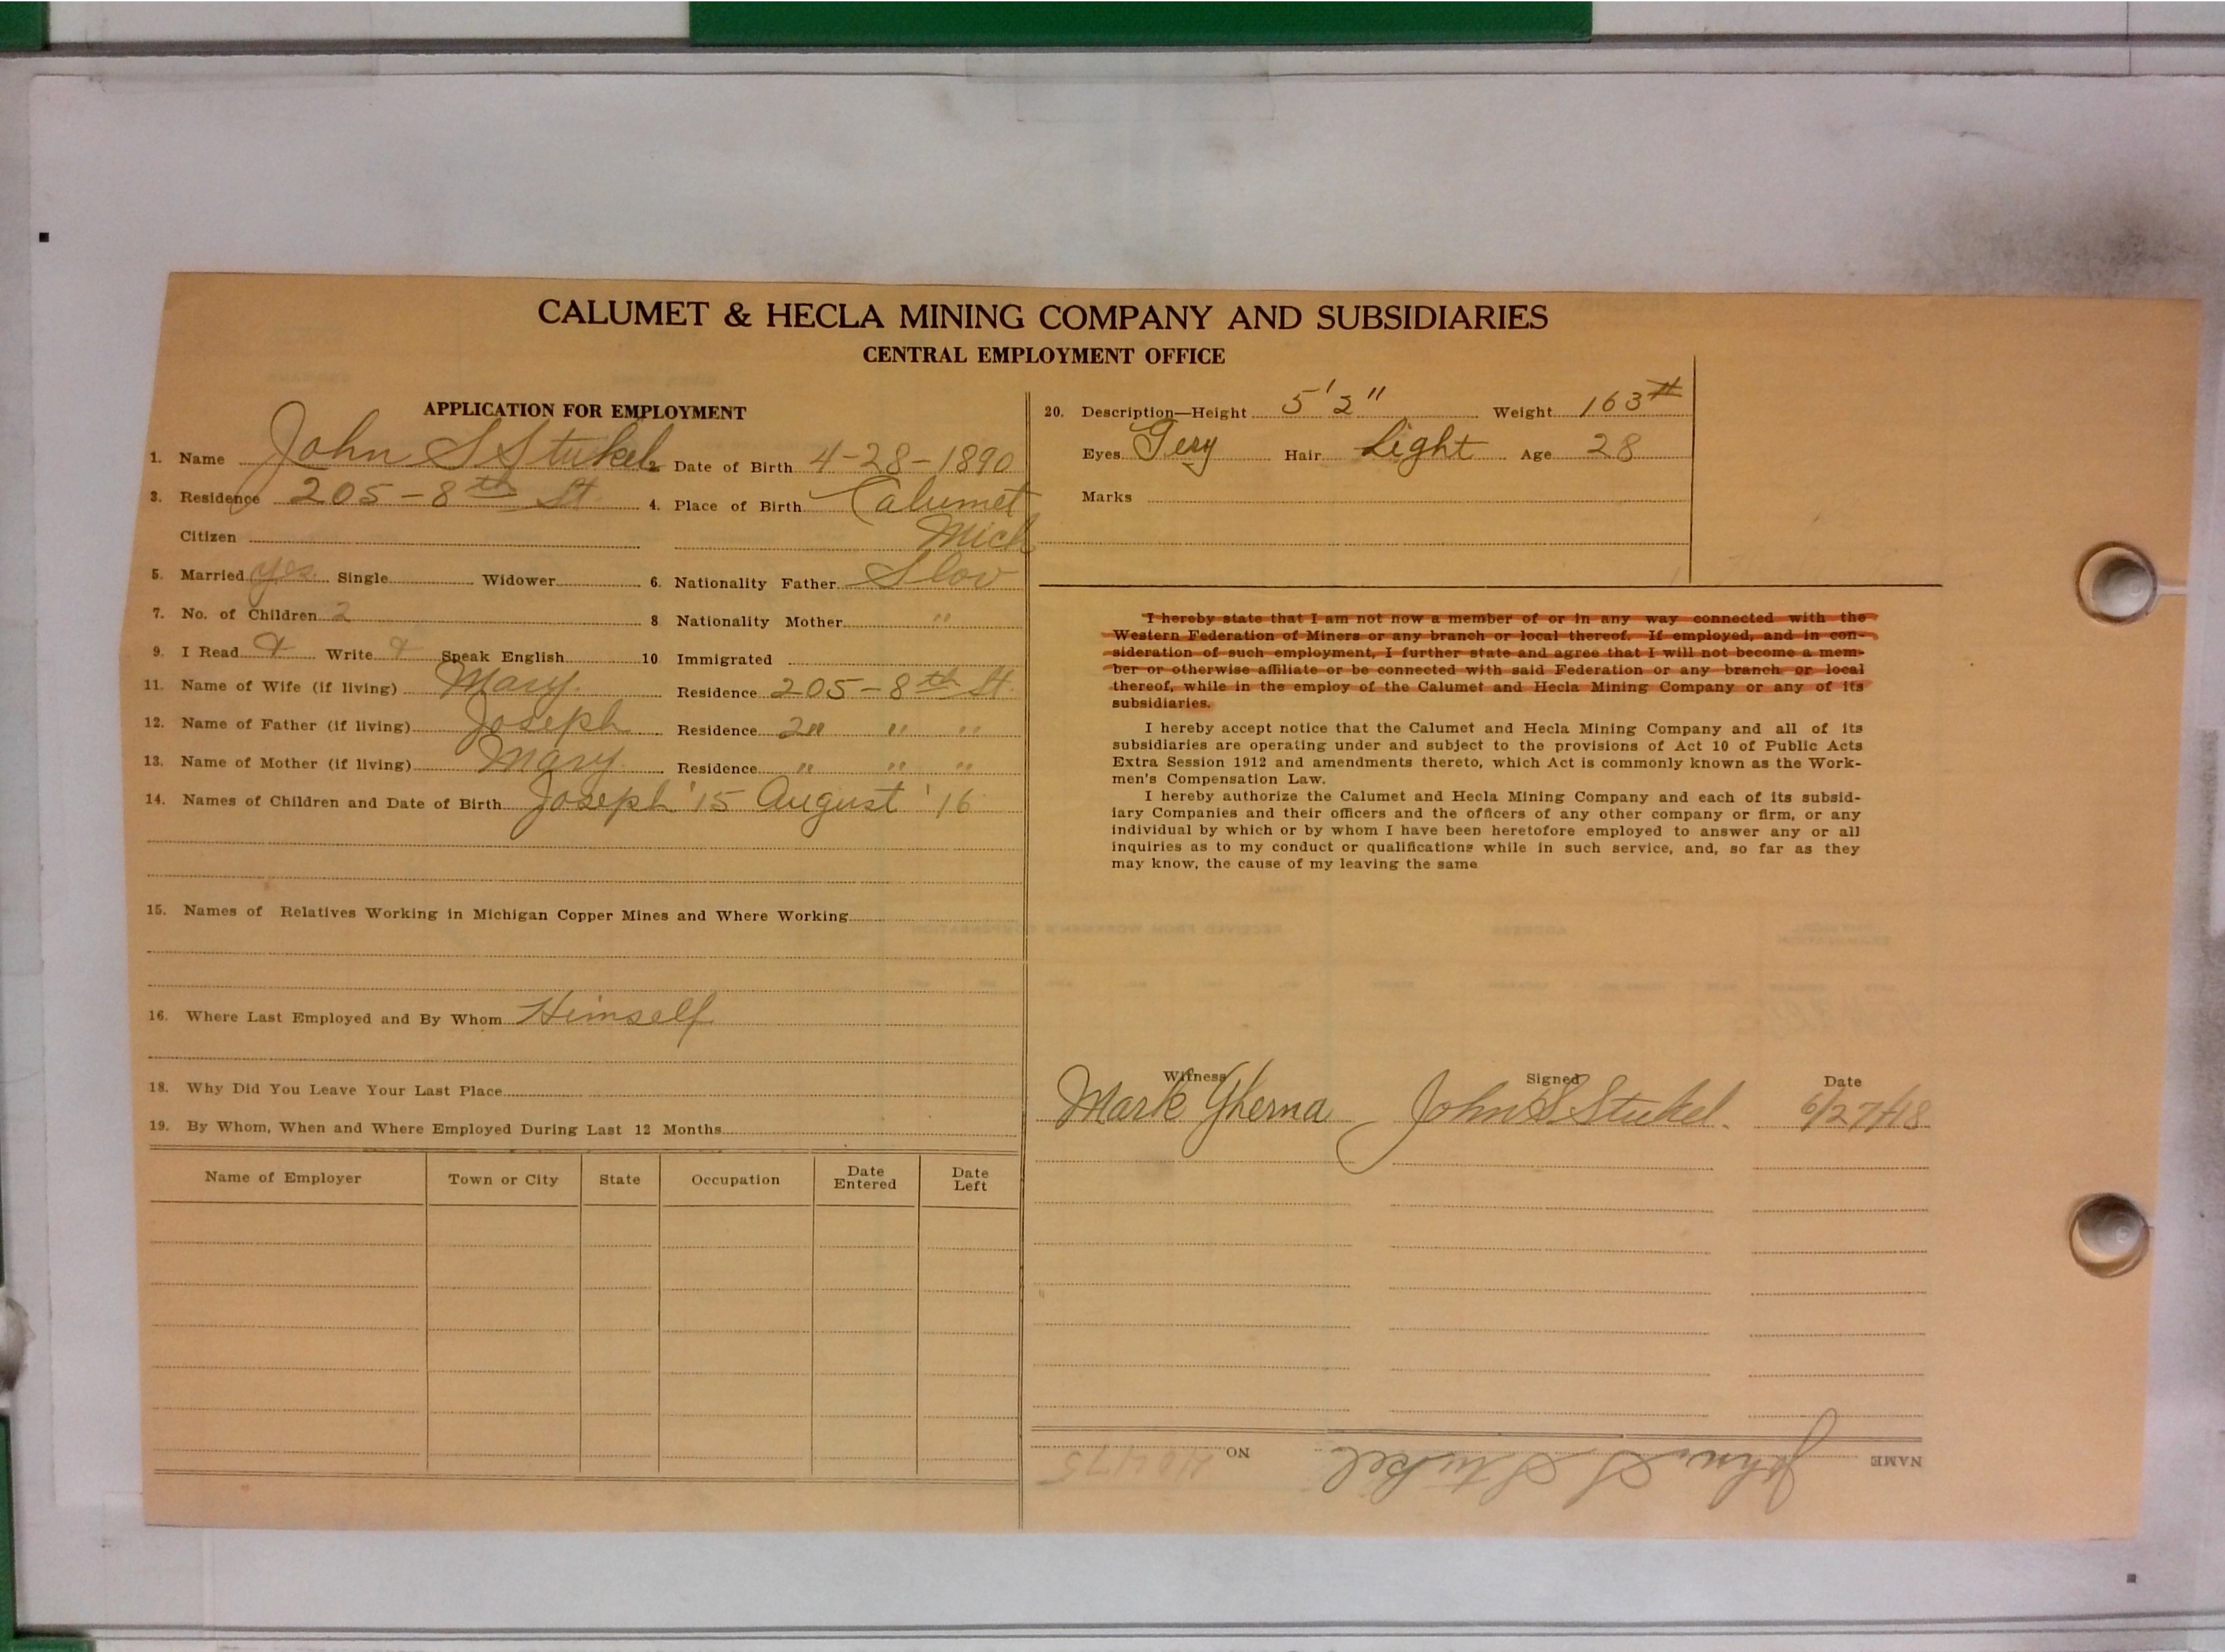 CALUMET & HECLA MINING COMPANY AND SUBSIDIARIES
CENTRAL EMPLOYMENT OFFICE
APPLICATION FOR EMPLOYMENT
1. Name John S Stukel 2. Date of Birth 4-28-1890
3. Residence 205-8th St. 4. Place of Birth Calumet
Citizen Mich
5. Married yes Single Widower 6. Nationality Father Slov
7. No. of Children 2 8 Nationality Mother "
9. I Read Write Speak English 10 Immigrated
11. Name of Wife (if living) Mary. Residence 205-8th St.
12. Name of Father (if living) Joseph Residence " " "
13. Name of Mother (if living) Mary Residence " " "
14. Names of Children and Date of Birth Joseph '15 August '16
15. Names of Relatives Working in Michigan Copper Mines and Where Working
16. Where Last Employed and By Whom Himself
18. Why Did You Leave Your Last Place
19. By Whom, When and Where Employed During Last 12 Months
Name of Employer Town or City State Occupation Date Entered Date Left
20. Description—Height 5'2" Weight 163#
Eyes Gery Hair Light Age 28
Marks
I hereby state that I am not now a member of or in any way connected with the
Western Federation of Miners or any branch or local thereof. If employed, and in con-
sideration of such employment, I further state and agree that I will not become a mem-
ber or otherwise affiliate or be connected with said Federation or any branch or local
thereof, while in the employ of the Calumet and Hecla Mining Company or any of its
subsidiaries.
I hereby accept notice that the Calumet and Hecla Mining Company and all of its
subsidiaries are operating under and subject to the provisions of Act 10 of Public Acts
Extra Session 1912 and amendments thereto, which Act is commonly known as the Work-
men's Compensation Law.
I hereby authorize the Calumet and Hecla Mining Company and each of its subsid-
iary Companies and their officers and the officers of any other company or firm, or any
individual by which or by whom I have been heretofore employed to answer any or all
inquiries as to my conduct or qualifications while in such service, and, so far as they
may know, the cause of my leaving the same
Witness Signed Date
Mark Gherna John S Stukel. 6/27/18
NAME John S Stukel NO